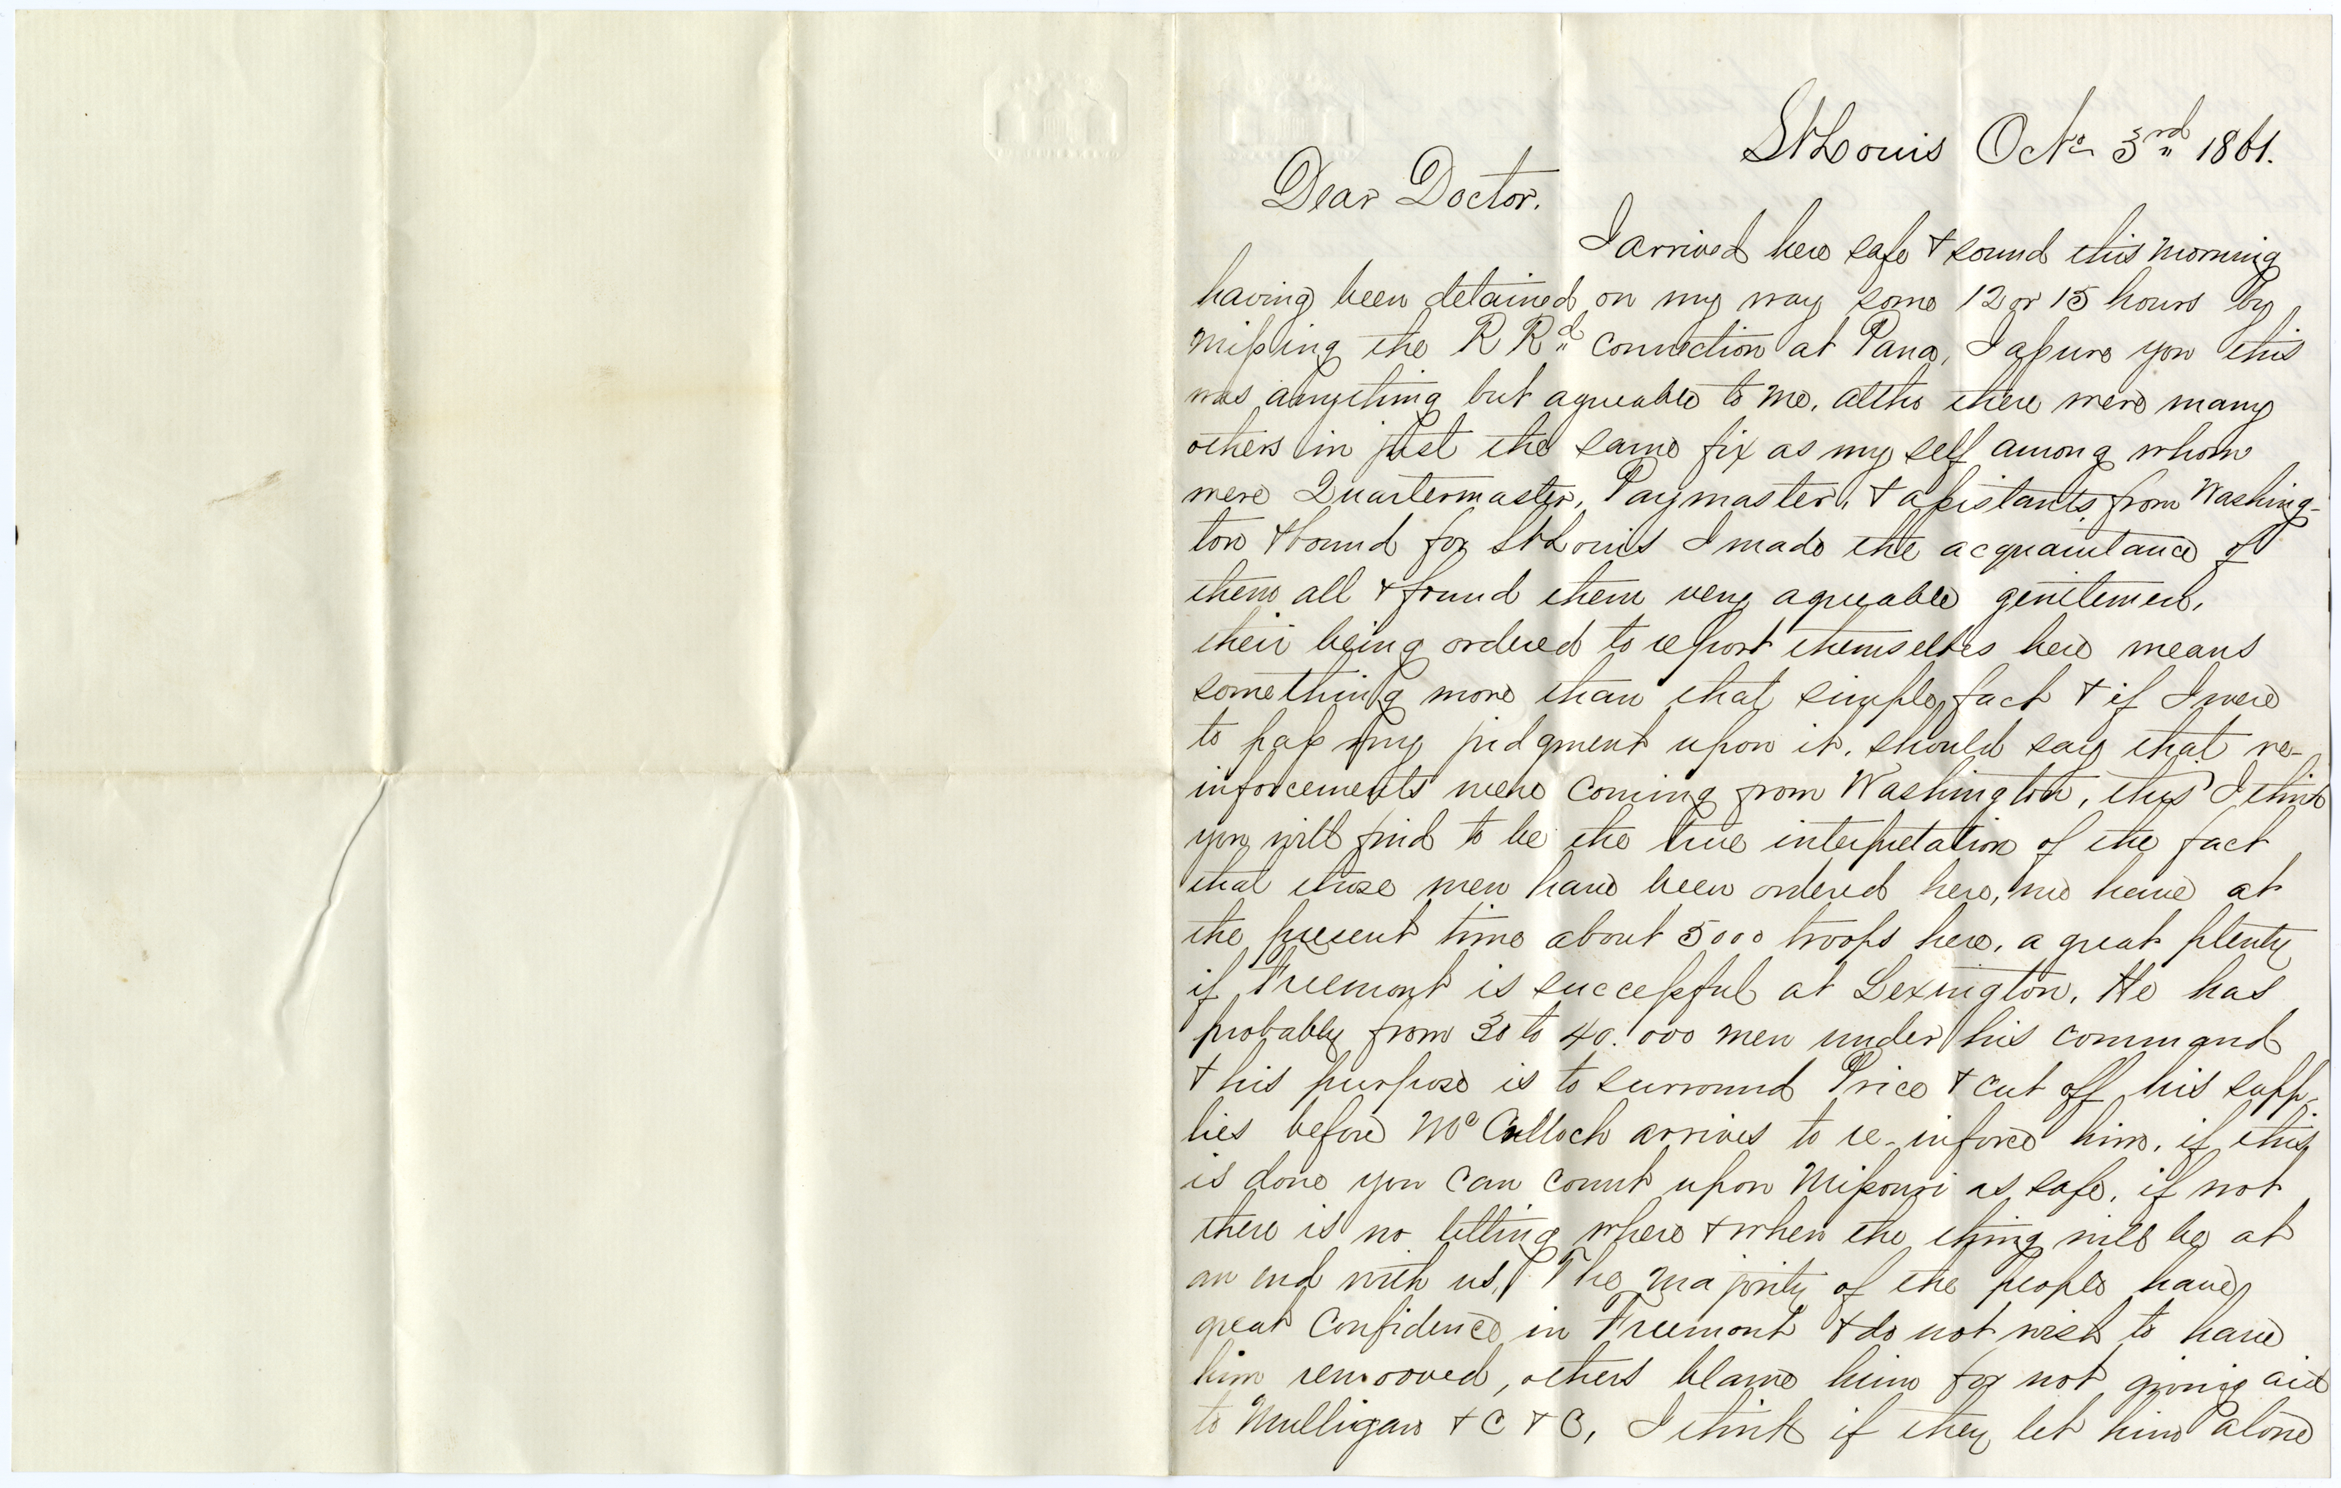 St Louis Oct. 3rd 1861.
Dear Doctor.
I arrived here safe & sound this morning
having been detained on my way some 12 or 15 hours by
missing the R Rd connection at Pana, I assure you this
was anything but agreeable to me, altho there were many
others in just the same fix as my self among whom
were Quartermaster, Paymaster, & assistants from Washing-
ton & bound for St Louis I made the acquaintance of
them all & found them very agreeable gentlemen,
their being ordered to report themselves here means
something more than that simple fact & if I were
to pass my judgment upon it, should say that re-
inforcements were coming from Washington, this I think
you will find to be the true interpretation of the fact
that those men have been ordered here, we have at
the present time about 5000 troops here, a great plenty
if Freemont is successful at Lexington. He has
probably from 30 to 40.000 men under his command
& his purpose is to surround Price & cut off his supp-
lies before McCulloch arrives to re-inforce him, if this
is done you can count upon Missouri as safe, if not
there is no telling where & when the thing will be at
an end with us, The majority of the people have
great confidence in Freemont & do not wish to have
him remooved, others blame him for not giving aid
to Mulligan & C & C, I think if they let him alone